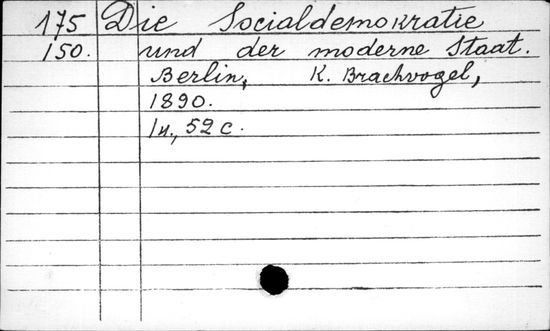 175 Die Socialdemokratie
150. und der moderne Staat.
Berlin, K. Brachvogel,
1890.
1н., 52 с.